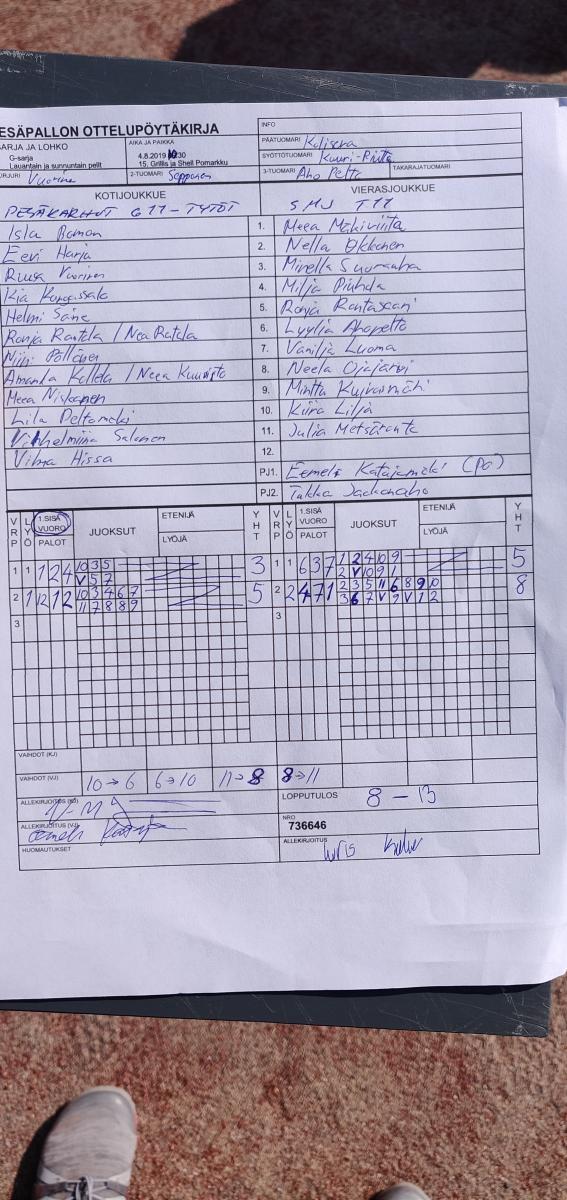 ESÄPALLON OTTELUPÖYTÄKIRJA
INFO
SARJA JA LOHKO
G-sarja
Lauantain ja sunnuntain pelit
AIKA JA PAIKKA
4.8.2019
15, Grillis ja Shell Pomarkku
PÄÄTUOMARI
SYÖTTÖTUOMARI Kuuri-Riutta
2-TUOMARI Sepponen
3-TUOMARI Aho Pette
TAKARAJATUOMARI
KOTIJOUKKUE
VIERASJOUKKUE
PESÄKARHUT G11-TYTÖT
SMJ T11
Isla Boman
1. Meea Mäkiviita
Eevi Harja
2. Nella Okkonen
Ruusa Vuorinen
3. Minella
Kia Kangassalo
4. Milja
Helmi Säne
5. Ronja Rantasaari
Ronja Rantala / Nea Rantala
6. Lyylia Ahopelto
Niini Pöllänen
7. Vanilja Luoma
Amanda / Neea Kuusisto
8. Neela Ojajärvi
Meea Niskanen
9. Mintta
Lila Peltomäki
10. Kiira Lilja
Vilhelmiina Salonen
11. Julia Metsäranta
Vilma Hissa
12.
PJ1. Eemeli Katajamäki (PO)
PJ2. Tukka
VRP
LYÖ
1.SISÄ VUORO
PALOT
JUOKSUT
ETENIJÄ
LYÖJÄ
YHT
VRP
LYÖ
1.SISÄ VUORO
PALOT
JUOKSUT
ETENIJÄ
LYÖJÄ
YHT
1 1 1 2 4 10 3 5 3
V 5 7
1 1 6 3 7 1 2 4 10 9 5
2 V 10 9 1
2 1 12 12 10 3 4 6 7 5
11 7 8 8 9
2 2 4 7 1 2 3 5 11 6 8 9 10 8
3 6 7 V 9 V 1 2
3
3
VAIHDOT (KJ)
VAIHDOT (VJ) 10→6 6→10 11→8 8→11
ALLEKIRJOITUS (KJ)
LOPPUTULOS 8 – 13
ALLEKIRJOITUS (VJ)
NRO
736646
HUOMAUTUKSET
ALLEKIRJOITUS